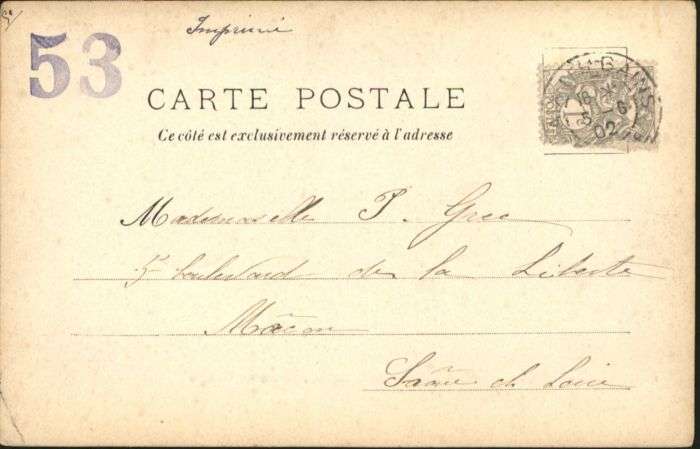 Imprimé
53
CARTE POSTALE
Ce côté est exclusivement réservé à l'adresse
Mademoiselle P. Grec
5 boulevard de la Liberté
Mâcon
Saône et Loire
BAINS
02